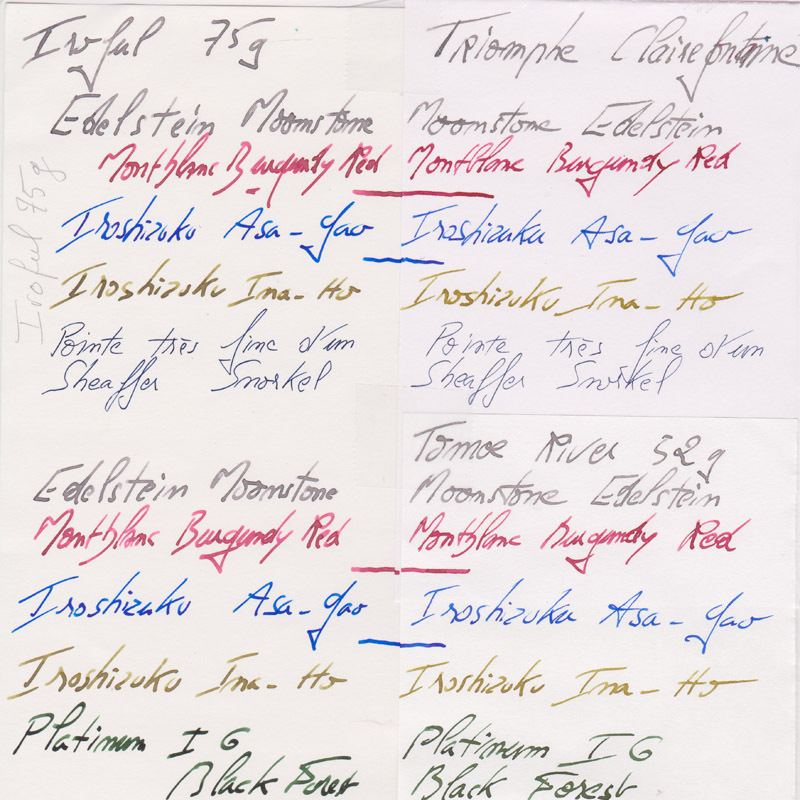 Iroful 75g
Edelstein Moonstone
Montblanc Burgundy Red
Iroshizuku Asa-Gao
Iroshizuku Ina-Ho
Pointe très fine d'un
Sheaffer Snorkel
Iroful 75g
Triomphe Clairefontaine
Moonstone Edelstein
Montblanc Burgundy Red
Iroshizuku Asa-Gao
Iroshizuku Ina-Ho
Pointe très fine d'un
Sheaffer Snorkel
Edelstein Moonstone
Montblanc Burgundy Red
Iroshizuku Asa-Gao
Iroshizuku Ina-Ho
Platinum IG
Black Forest
Tomoe River 52g
Moonstone Edelstein
Montblanc Burgundy Red
Iroshizuku Asa-Gao
Iroshizuku Ina-Ho
Platinum IG
Black Forest